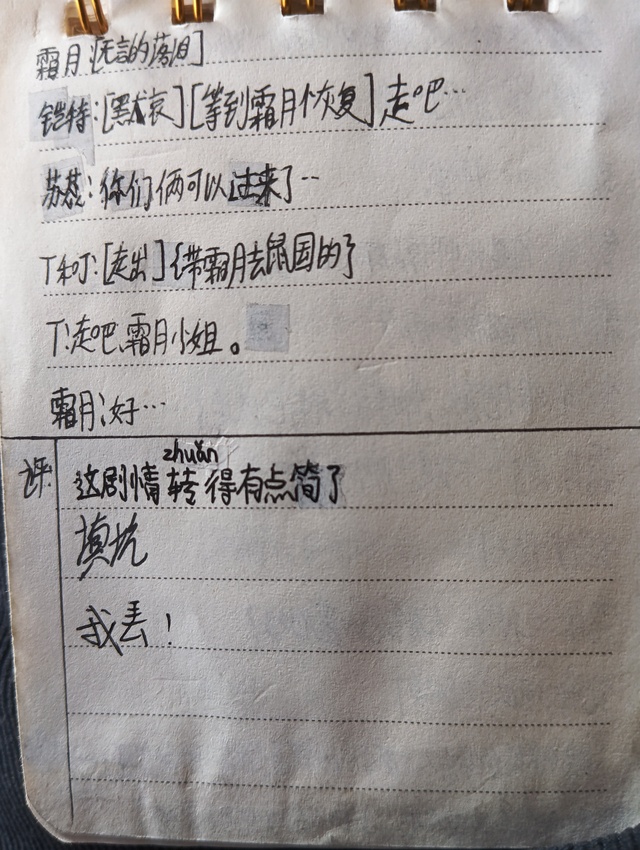 霜月:[无言的落泪]
铠特:[默哀][等到霜月恢复]走吧…
苏燕:你们俩可以过来了…
T和J:[走出]{带霜月去鼠国的}
T:走吧,霜月小姐。
霜月:好…
评:
zhuǎn
这剧情转得有点简了
填坑
我丢!